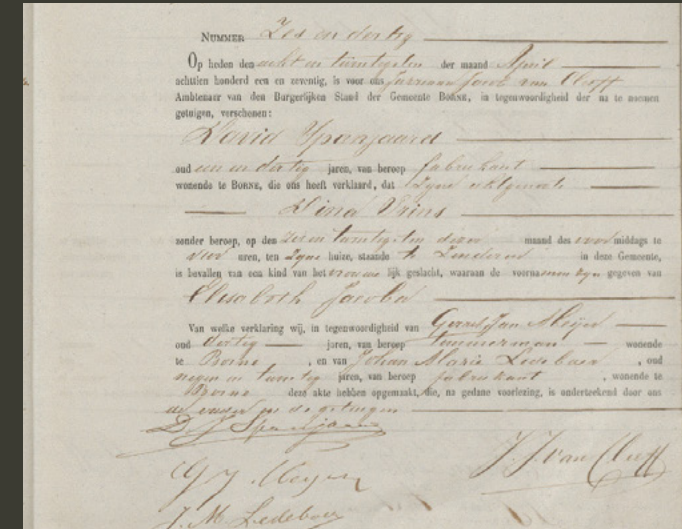 NUMMER Zes en dertig
Op heden den acht en twintigsten der maand April
achttien honderd een en zeventig, is voor ons Jurriaan Jacob van Cleeff
Ambtenaar van den Burgerlijken Stand der Gemeente BORNE, in tegenwoordigheid der na te noemen
getuigen, verschenen:
David Spanjaard
oud een en dertig jaren, van beroep fabrikant
wonende te BORNE, die ons heeft verklaard, dat zijne echtgenoote
Dina Prins
zonder beroep, op den zes en twintigsten dezer maand des voormiddags te
vier uren, ten zijne huize, staande te Zenderen in deze Gemeente,
is bevallen van een kind van het vrouwelijk geslacht, waaraan de voornamen zijn gegeven van
Elisabeth Jacoba
Van welke verklaring wij, in tegenwoordigheid van Gerrit Jan Meijer
oud dertig jaren, van beroep timmerman wonende
te Borne, en van Johan Marie Ledeboer, oud
negen en twintig jaren, van beroep fabrikant, wonende te
Borne deze akte hebben opgemaakt, die, na gedane voorlezing, is onderteekend door ons
de vader en de getuigen
D. J. Spanjaard
G J Meyer
J. J. van Cleeff
J. M. Ledeboer